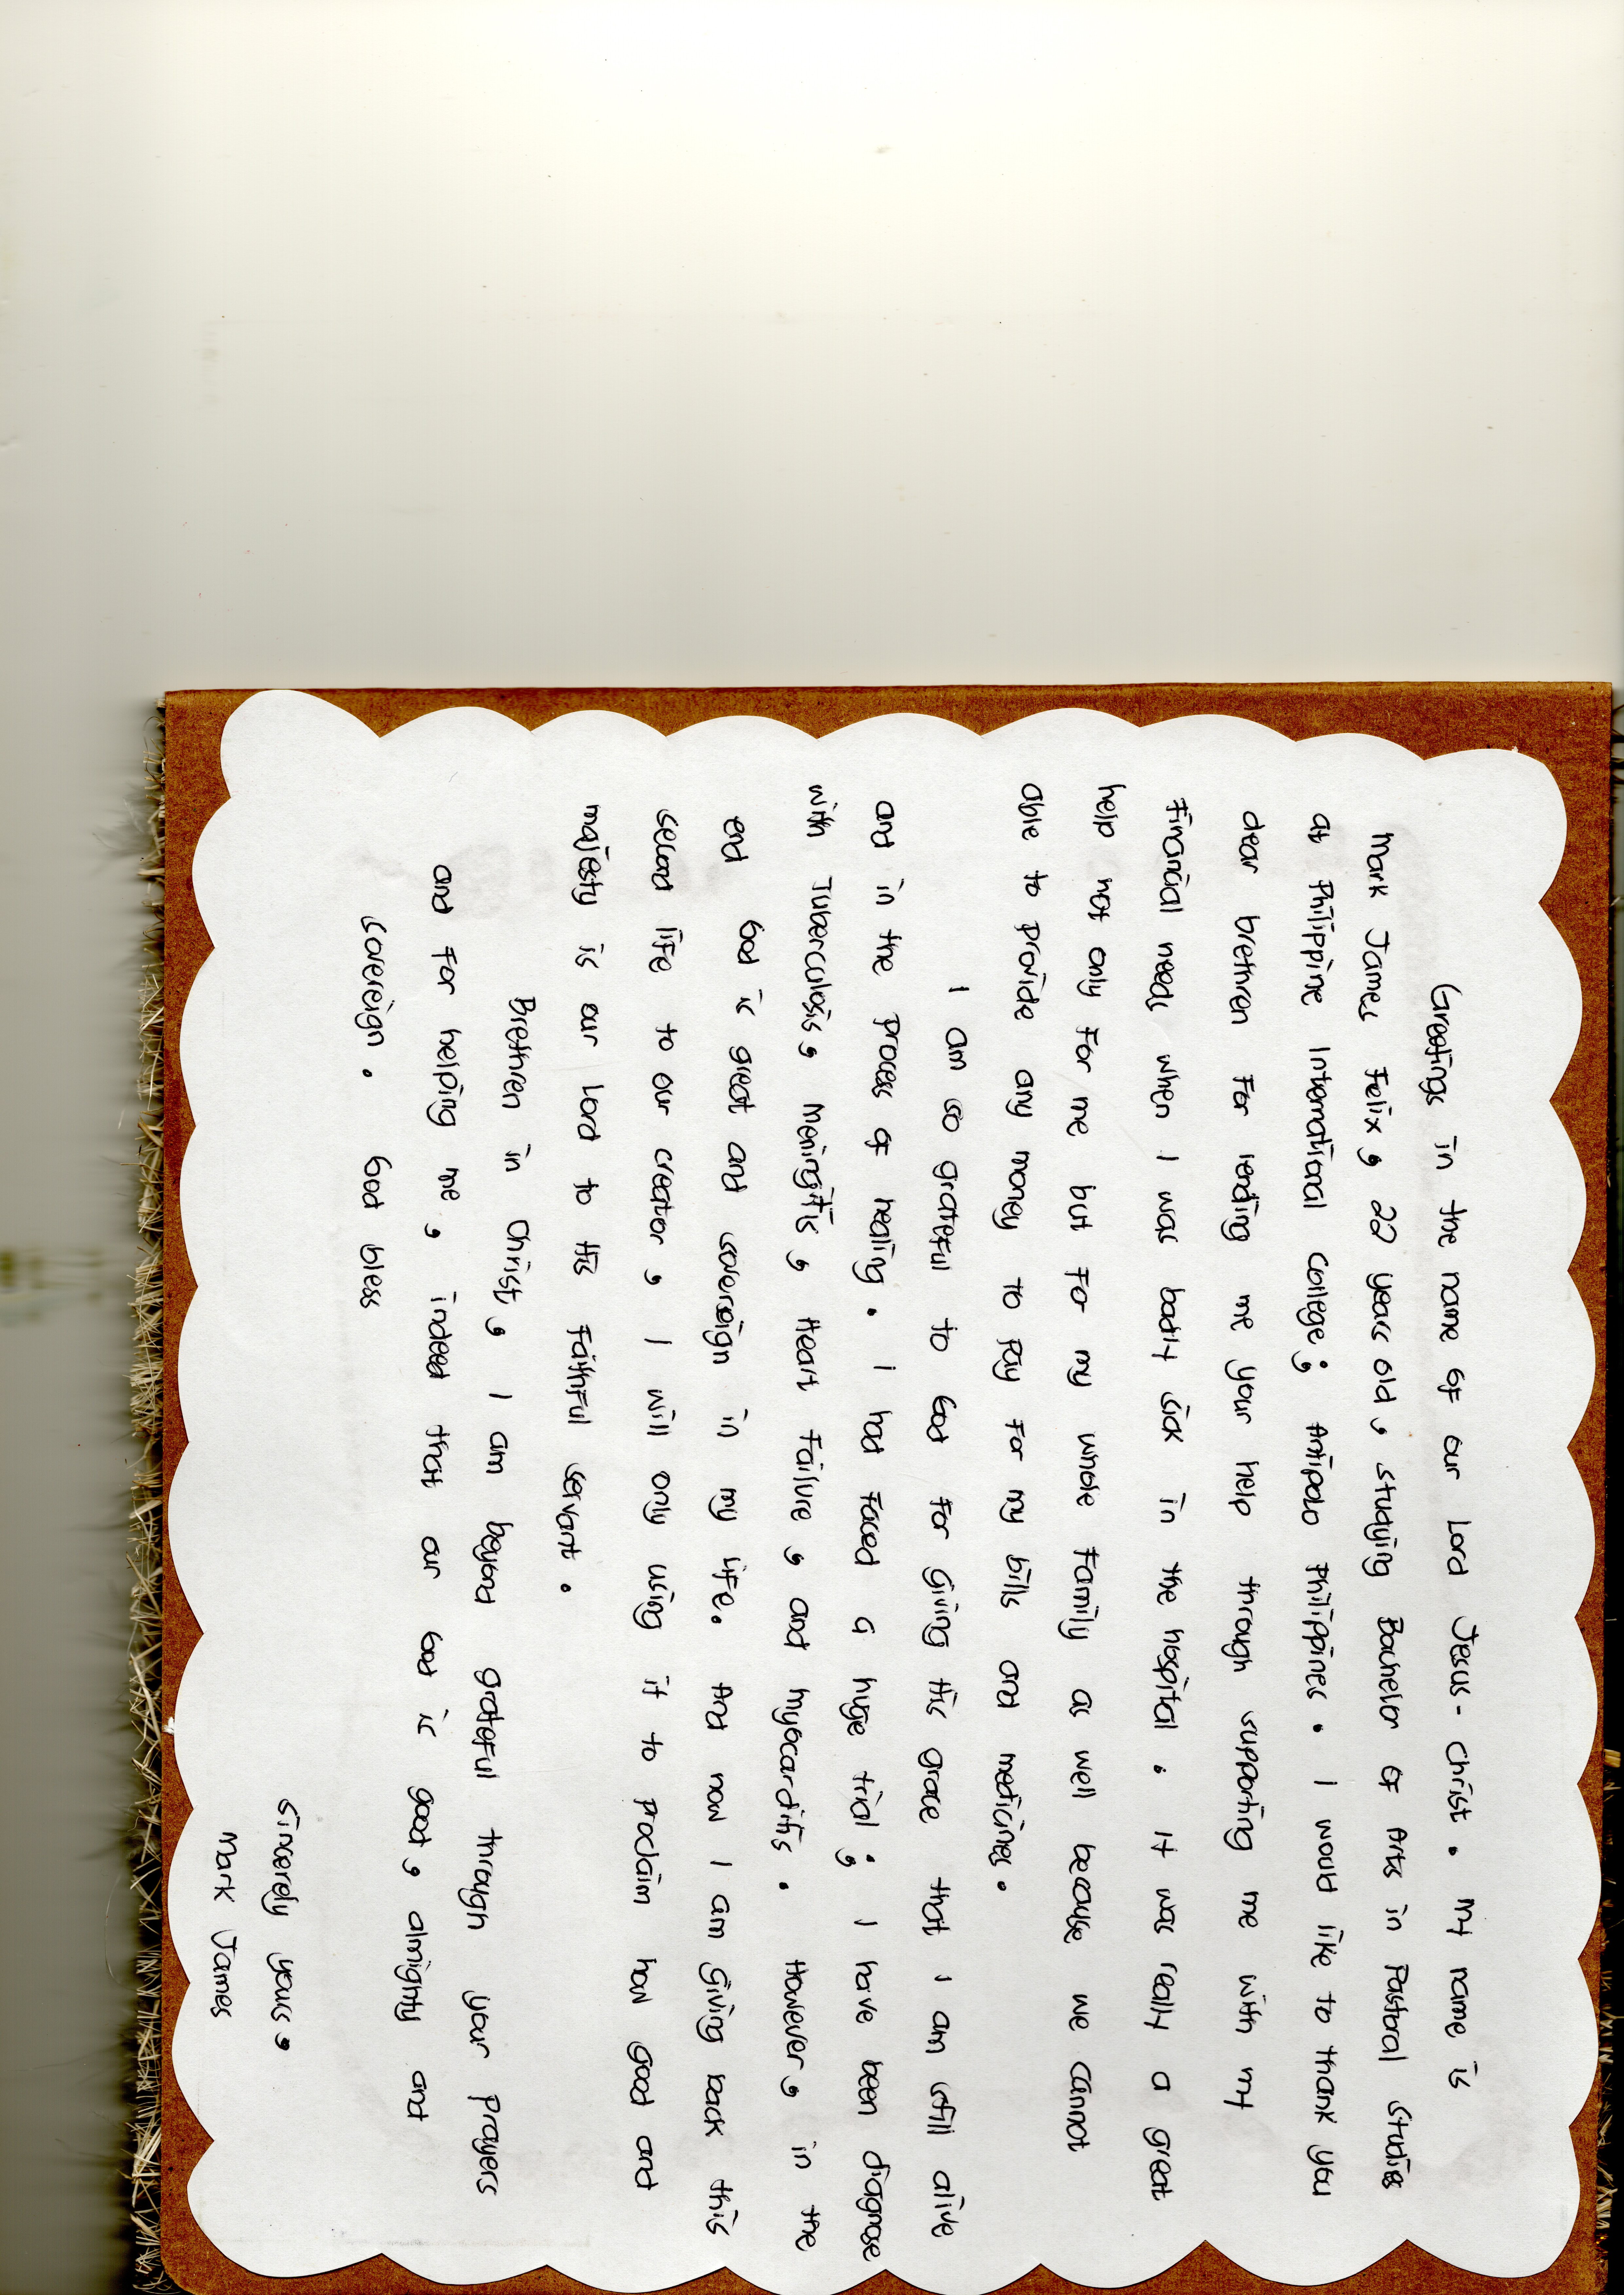 Greetings in the name of our Lord Jesus-Christ. My name is
Mark James Felix, 22 years old, studying Bachelor of Arts in Pastoral Studies
at Philippine International College; Antipolo Philippines. I would like to thank you
dear brethren for lending me your help through supporting me with my
financial needs when I was badly sick in the hospital. It was really a great
help not only for me but for my whole family as well because we cannot
able to provide any money to pay for my bills and medicines.
I am so grateful to God for giving His grace that I am still alive
and in the process of healing. I had faced a huge trial; I have been diagnose
with Tuberculosis, meningitis, Heart Failure, and myocarditis. However, in the
end God is great and sovereign in my life. And now I am giving back this
second life to our creator, I will only using it to proclaim how good and
majesty is our Lord to His faithful servant.
Brethren in Christ, I am beyond grateful through your prayers
and for helping me, indeed that our God is good, almighty and
sovereign. God bless
Sincerely yours,
Mark James